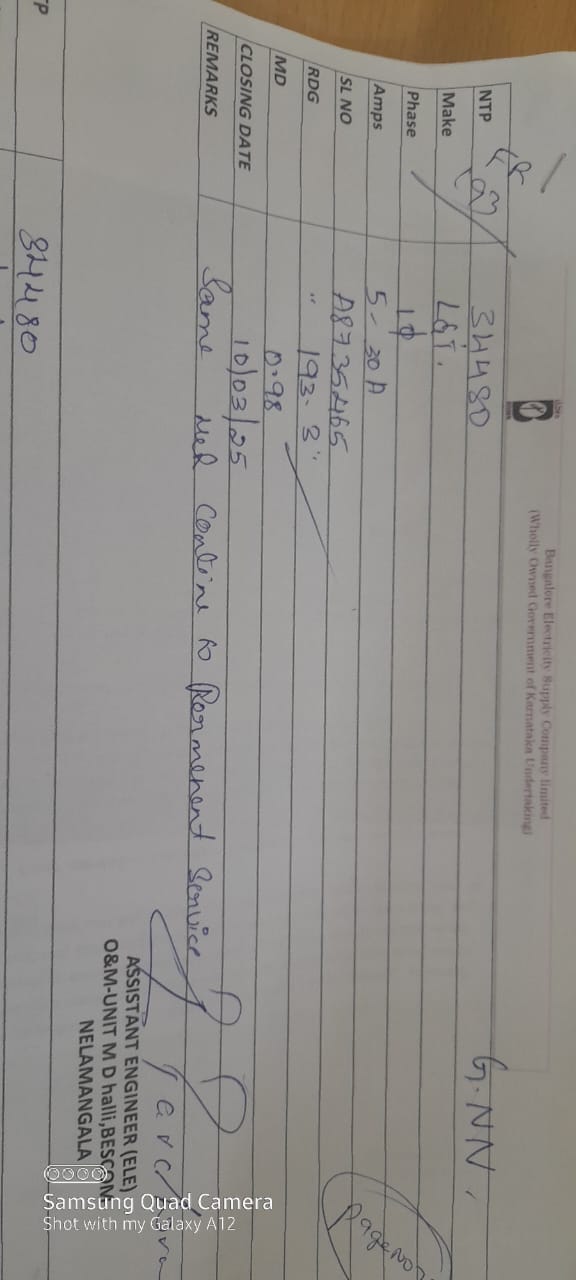 Bangalore Electricity Supply Company limited
(Wholly Owned Government of Karnataka Undertaking)
NTP 34480 G.NN.
Make L&T.
Phase 1ϕ
Amps 5-30A
SL NO A8735465
RDG " 193.3"
MD 0.98
CLOSING DATE 10/03/25
REMARKS Same contine to Permenent Service
Page No
ASSISTANT ENGINEER (ELE)
O&M-UNIT M D halli,BESCOM
NELAMANGALA
TP 34480
Samsung Quad Camera
Shot with my Galaxy A12